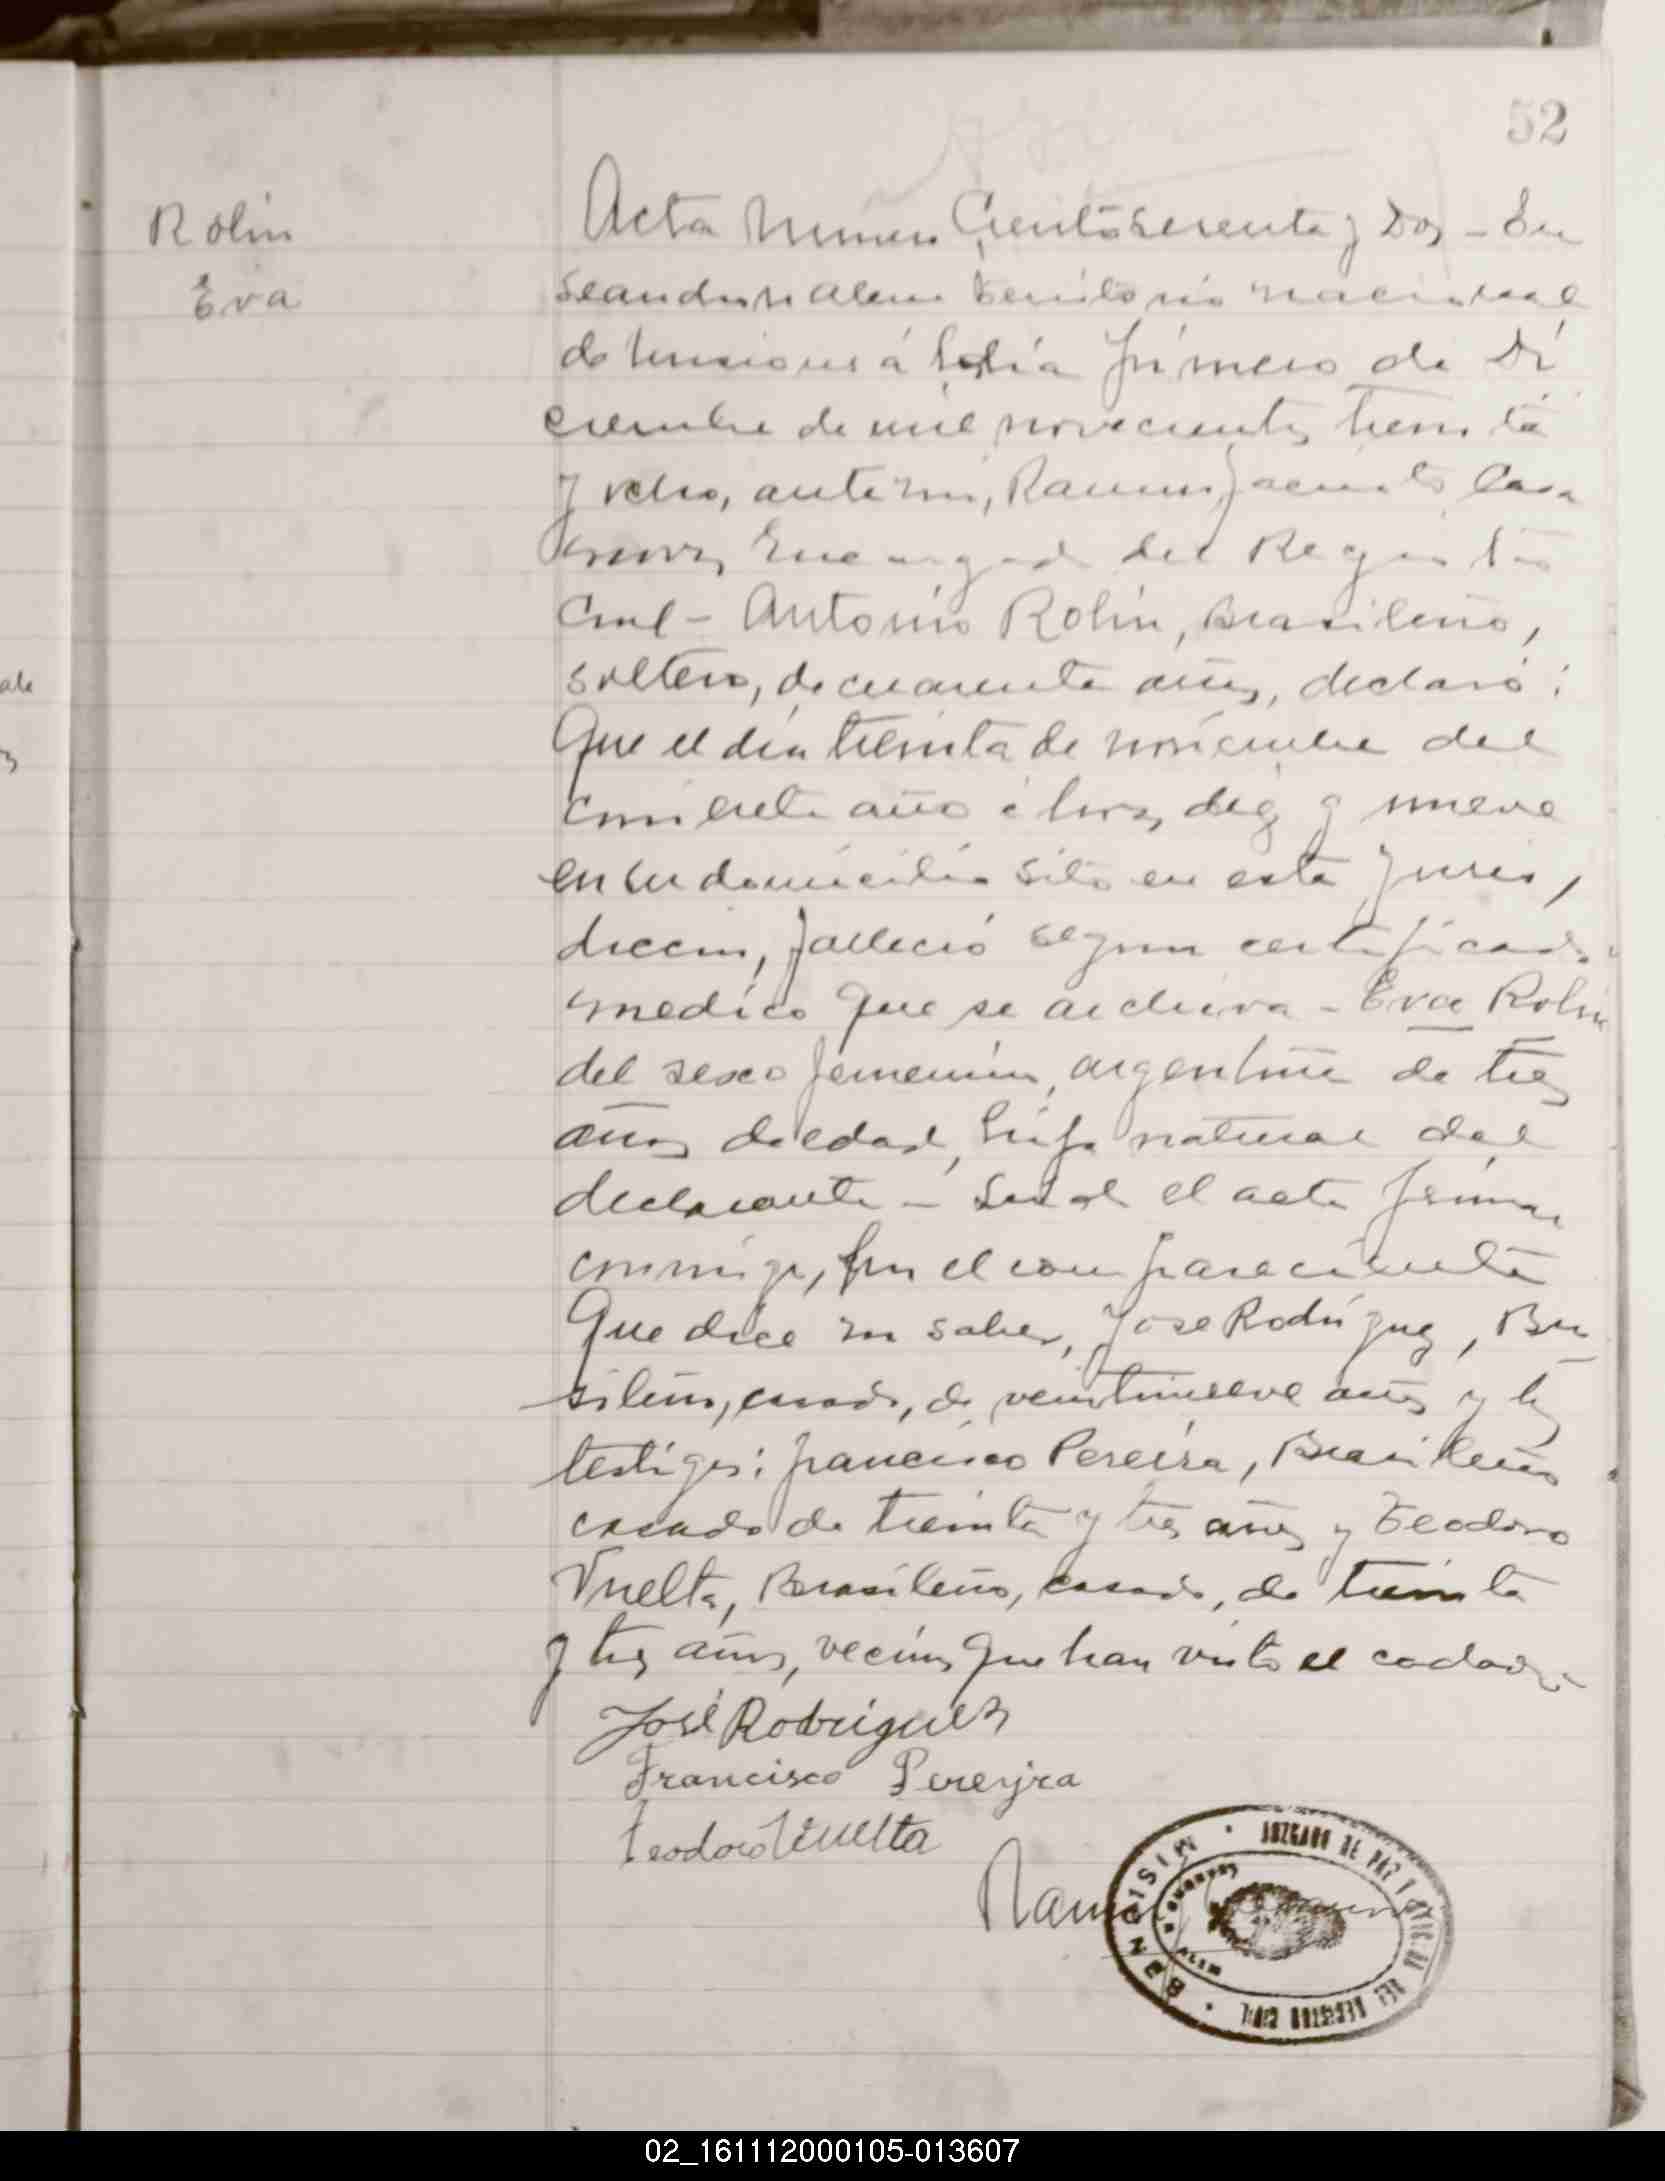 52
Rolin
Eva
Acta Numero Ciento sesenta y Dos - En
Leandro N Alem territorio nacional
de Misiones á dia primero de Di
ciembre de mil novecientos treinta
y ocho, ante mi, Ramon Jacinto Casa
Encargado del Registro
Civil - Antonio Rolin, Brasileño,
soltero, de cuarenta años, declaró:
Que el dia treinta de noviembre del
corriente año á horas diez y nueve
en su domicilio sito en esta juris,
diccion, falleció segun certificado
medico que se archiva - Eva Rolin
del sexo femenino, argentina de tres
años de edad, hija natural del
declarante - Leida el acta firman
conmigo, por el compareciente
Que dice no saber, Jose Rodriguez, Bra
sileño, casado, de veintinueve años y los
testigos: Francisco Pereira, Brasileño
casado de treinta y tres años y Teodoro
Vuelta, Brasileño, casado, de treinta
y tres años, vecinos que han visto el cadaver
José Rodriguez
Francisco Pereyra
Teodoro Vuelta
Ramon
JUZGADO DE PAZ Y OFIC. DEL REGISTRO CIVIL
MISIONES
02_161112000105-013607